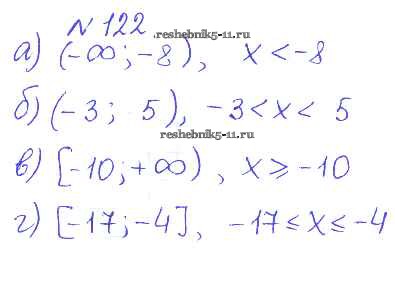 № 122
reshebnik5-11.ru
а) (-∞; -8), x < -8
б) (-3; 5), -3 < x < 5
reshebnik5-11.ru
в) [-10; +∞), x ⩾ -10
г) [-17; -4], -17 ≤ x ≤ -4